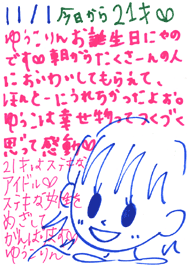 11/1 今日から21才♡
ゆうこりんお誕生日にゃの
です♡朝からたくさんの人
においわいしてもらえて、
ほんとーにうれちかったよぉ。
ゆうこは幸せ物ってつくづく
思って感動♡
21才よステキな
アイドル♡
ステキな女性を
めざして
がんばりまする
ゆうこりん